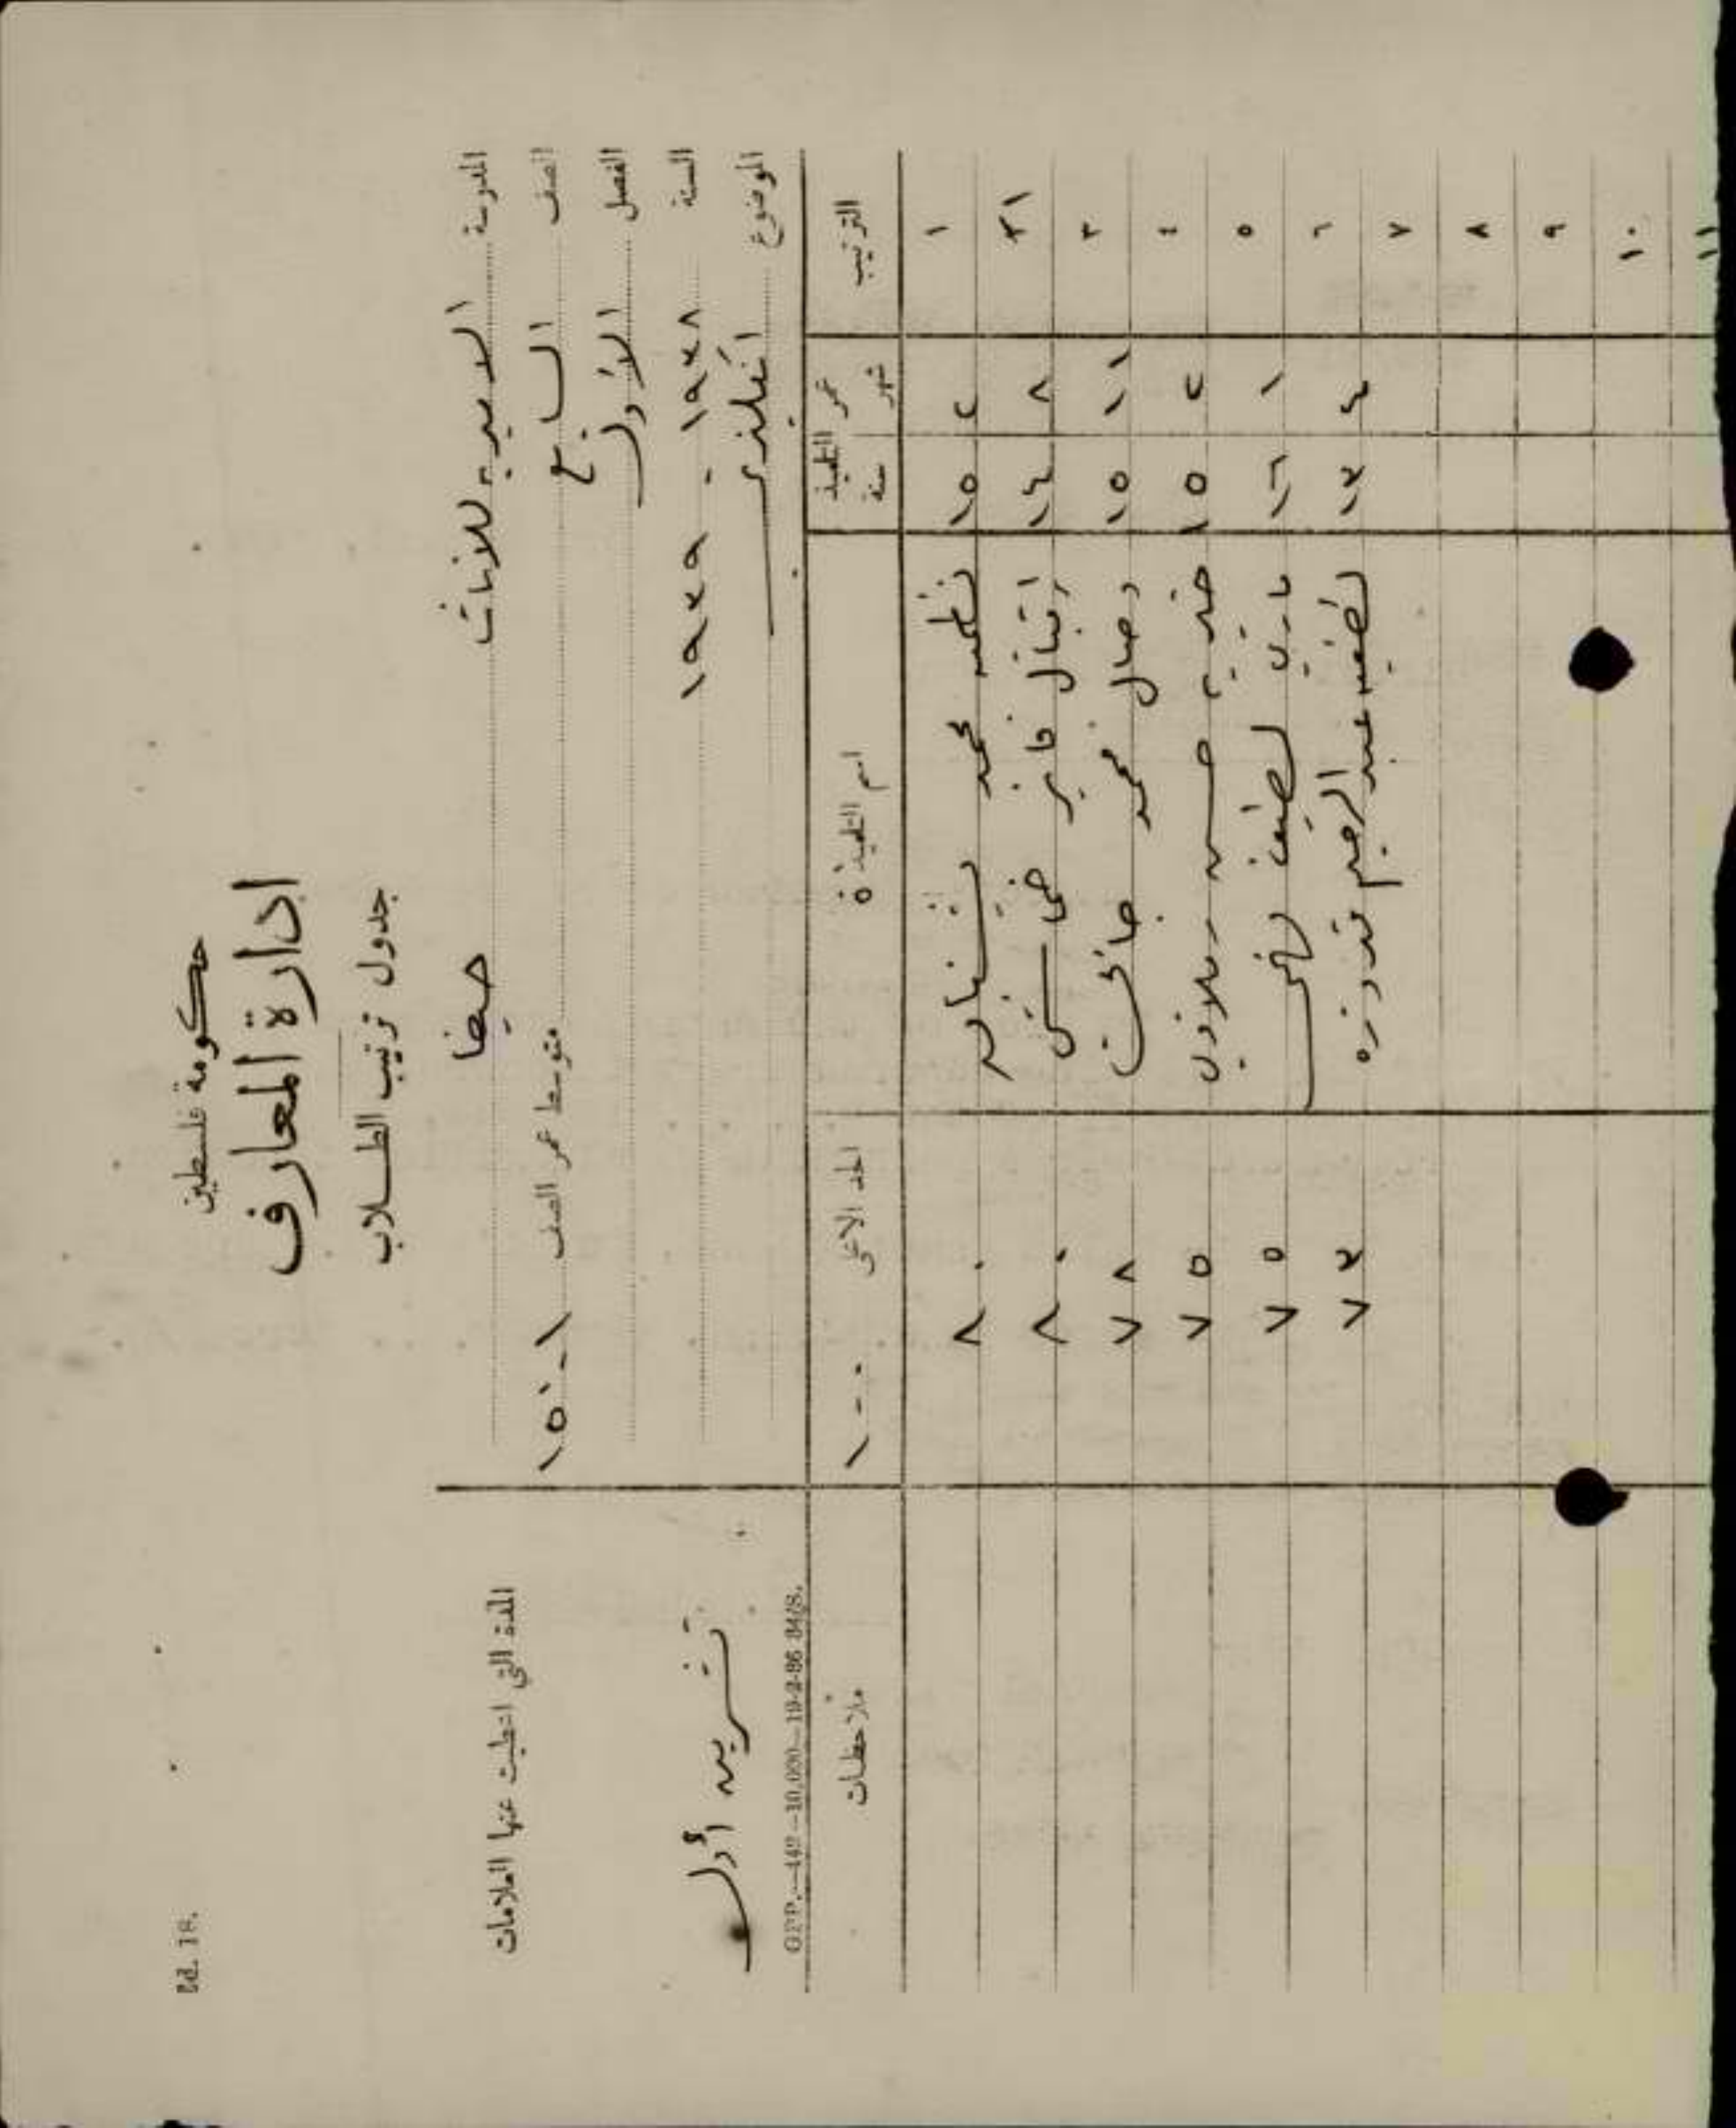 Ed. 18.
حكومة فلسطين
ادارة المعارف
جدول ترتيب الطلاب
المدرسة الاميريه للاناث حيفا
الصف السابع متوسط عمر الصف ١ - ١٥
الفصل الاول
السنة ١٩٣٨ - ١٩٣٩
الموضوع انكليزي
المدة التي اعطيت عنها العلامات
تشرين أول
GPP.—442—10,000—19-2-36 84/S.
الترتيب عمر التلميذ اسم التلميذة الحد الاعلى ١٠٠ ملاحظات
شهر سنة
١ ٢ ١٥ نظميه محمد ٨٠
٢١ ٨ ١٤ اقبال فايز خماش ٨٠
٣ ١١ ١٥ وصال محمد ٧٨
٤ ٢ ١٥ خيريه حسن ٧٥
٥ ١ ١٦ ماري لطيف ٧٥
٦ ٤ ١٣ لطفيه عبد الرحيم ٧٣
٧
٨
٩
١٠
١١